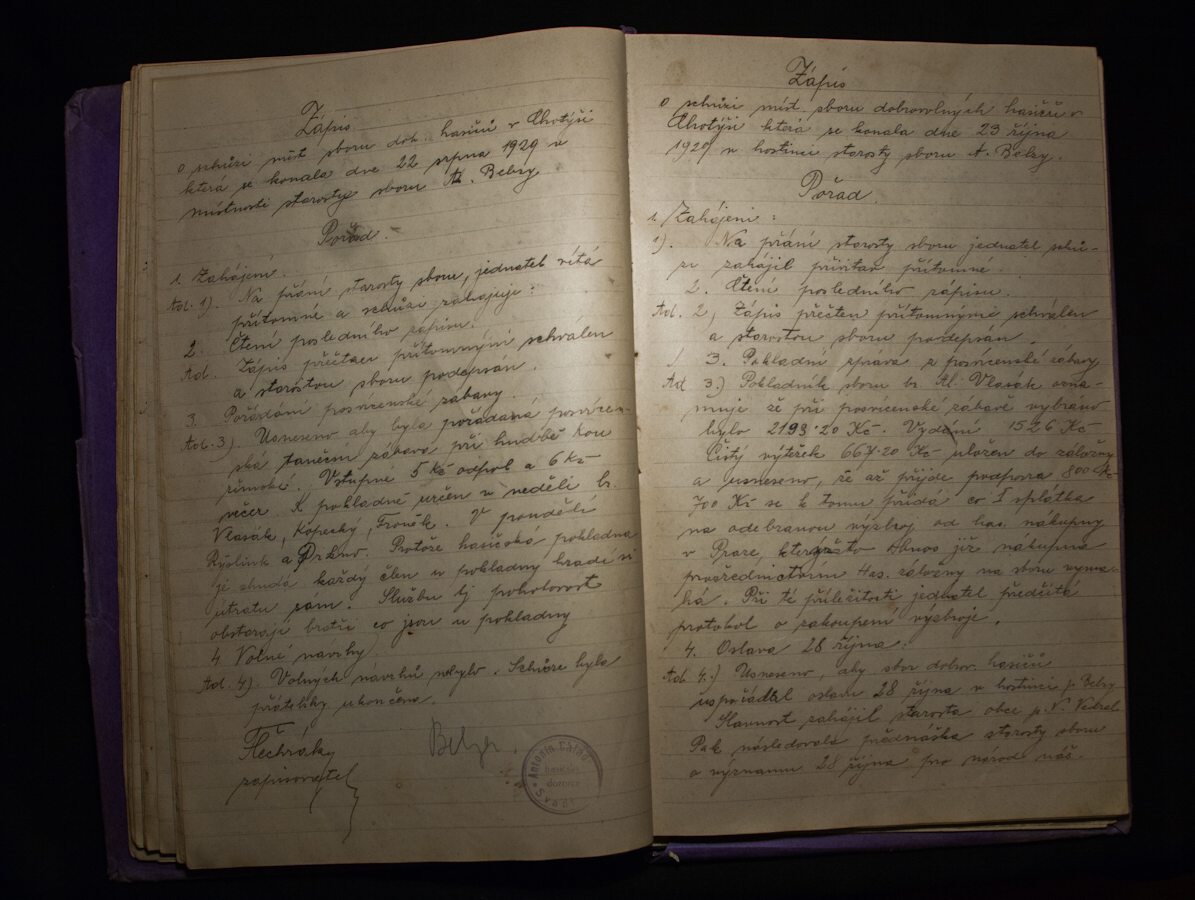 Zápis
o schůzi míst sboru dob. hasičů v Chotýši
která se konala dne 22 srpna 1929 v
místnosti starosty sboru A. Belzy
Pořad.
1. Zahájení.
Ad. 1). Na přání starosty sboru, jednatel vítá
přítomné a schůzi zahajuje:
2. Čtení posledního zápisu.
Ad. Zápis přečten přítomnými schválen
a starostou sboru podepsán.
3. Pořádání posvícenské zábavy.
Ad. 3). Usneseno aby byla pořádaná posvícen-
ská taneční zábava při hudbě Kou
římské. Vstupné 5 Kč odpol a 6 Kč
večer. K pokladně určen v neděli br.
Vlasák, Kopecký, Froněk. V pondělí
a Protože hasičská pokladna
je chudá každý člen u pokladny hradí si
útratu sám. Službu tj pohotovost
obstarají bratři co jsou u pokladny
4 Volné navrhy
Ad. 4). Volných návrhů nebylo. Schůze byla
přátelsky ukončena.
zapisovatel
Belza.
Antonín
hasičský
dozorce
Zápis
o schůzi míst. sboru dobrovolných hasičů v
Chotýši která se konala dne 23 října
1929 v hostinci starosty sboru A. Belzy.
Pořad.
1. Zahájení:
1). Na přání starosty sboru jednatel schů-
zi zahájil přivítav přítomné.
2. Čtení posledního zápisu.
Ad. 2, Zápis přečten přítomnými schválen
a starostou sboru podepsán.
3. Pokladní zpráva z posvícenské zábavy
Ad 3.) Pokladník sboru br. Al. Vlasák ozna-
muje že při posvícenské zábavě vybráno
bylo 2193·20 Kč. Vydání 1526 Kč
Čistý výtěžek 667·20 Kč uložen do záložny
a usneseno, že až přijde podpora 800 K-
700 Kč se k tomu přidá co I splátka
na odebranou výzbroj od has. nákupny
v Praze, kterýžto obnos již nákupna
prostřednictvím Has. záložny na sboru vymá-
há. Při té příležitosti jednatel předčítá
protokol o zakoupení výzbroje.
4. Oslava 28 října.
Ad. 4.) Usneseno, aby sbor dobrov. hasičů
uspořádal oslavu 28 října v hostinci p. Belzy
Slavnost zahájil starosta obce p. V.
Pak následovala přednáška starosty sboru
o významu 28 října pro národ náš.